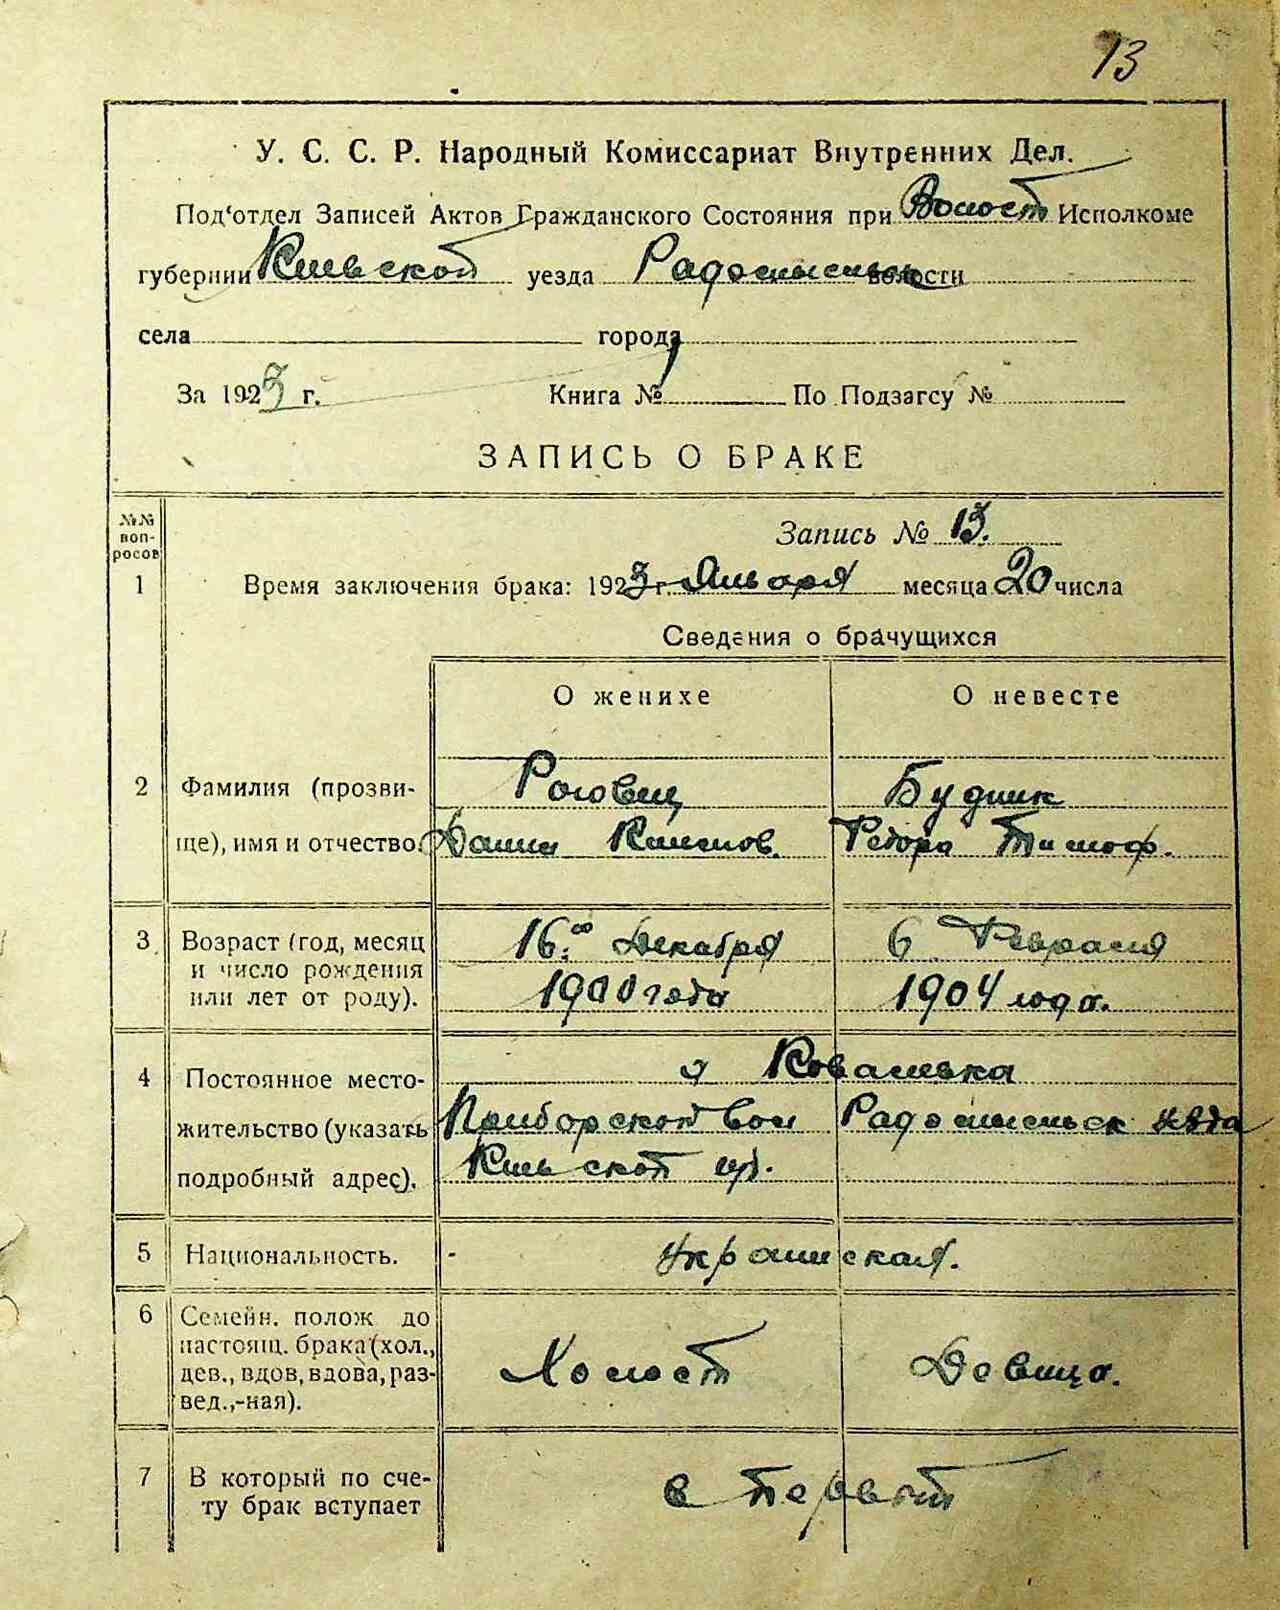 13
У. С. С. Р. Народный Комиссариат Внутренних Дел.
Под'отдел Записей Актов Гражданского Состояния при Волост Исполкоме
губернии Киевской уезда Радомысльск волости
села города
За 1923 г. Книга № 1 По Подзагсу №
ЗАПИСЬ О БРАКЕ
№№ воп-росов
Запись № 13.
1 Время заключения брака: 1923 г. Января месяца 20 числа
Сведения о брачущихся
О женихе О невесте
2 Фамилия (прозви- Роговец Будник
ще), имя и отчество. Данил Климов. Федора Тимоф.
3 Возраст (год, месяц 16го Декабря 6 Февраля
и число рождения
или лет от роду). 1900 года 1904 года.
4 Постоянное место- Ковалевка
жительство (указать Приборской вол Радомысльск уезда
подробный адрес). Киевской губ.
5 Национальность. Украинская.
6 Семейн. полож до
настоящ. брака (хол.,
дев., вдов, вдова, раз- Холост Девица.
вед.,-ная).
7 В который по сче- в первый
ту брак вступает